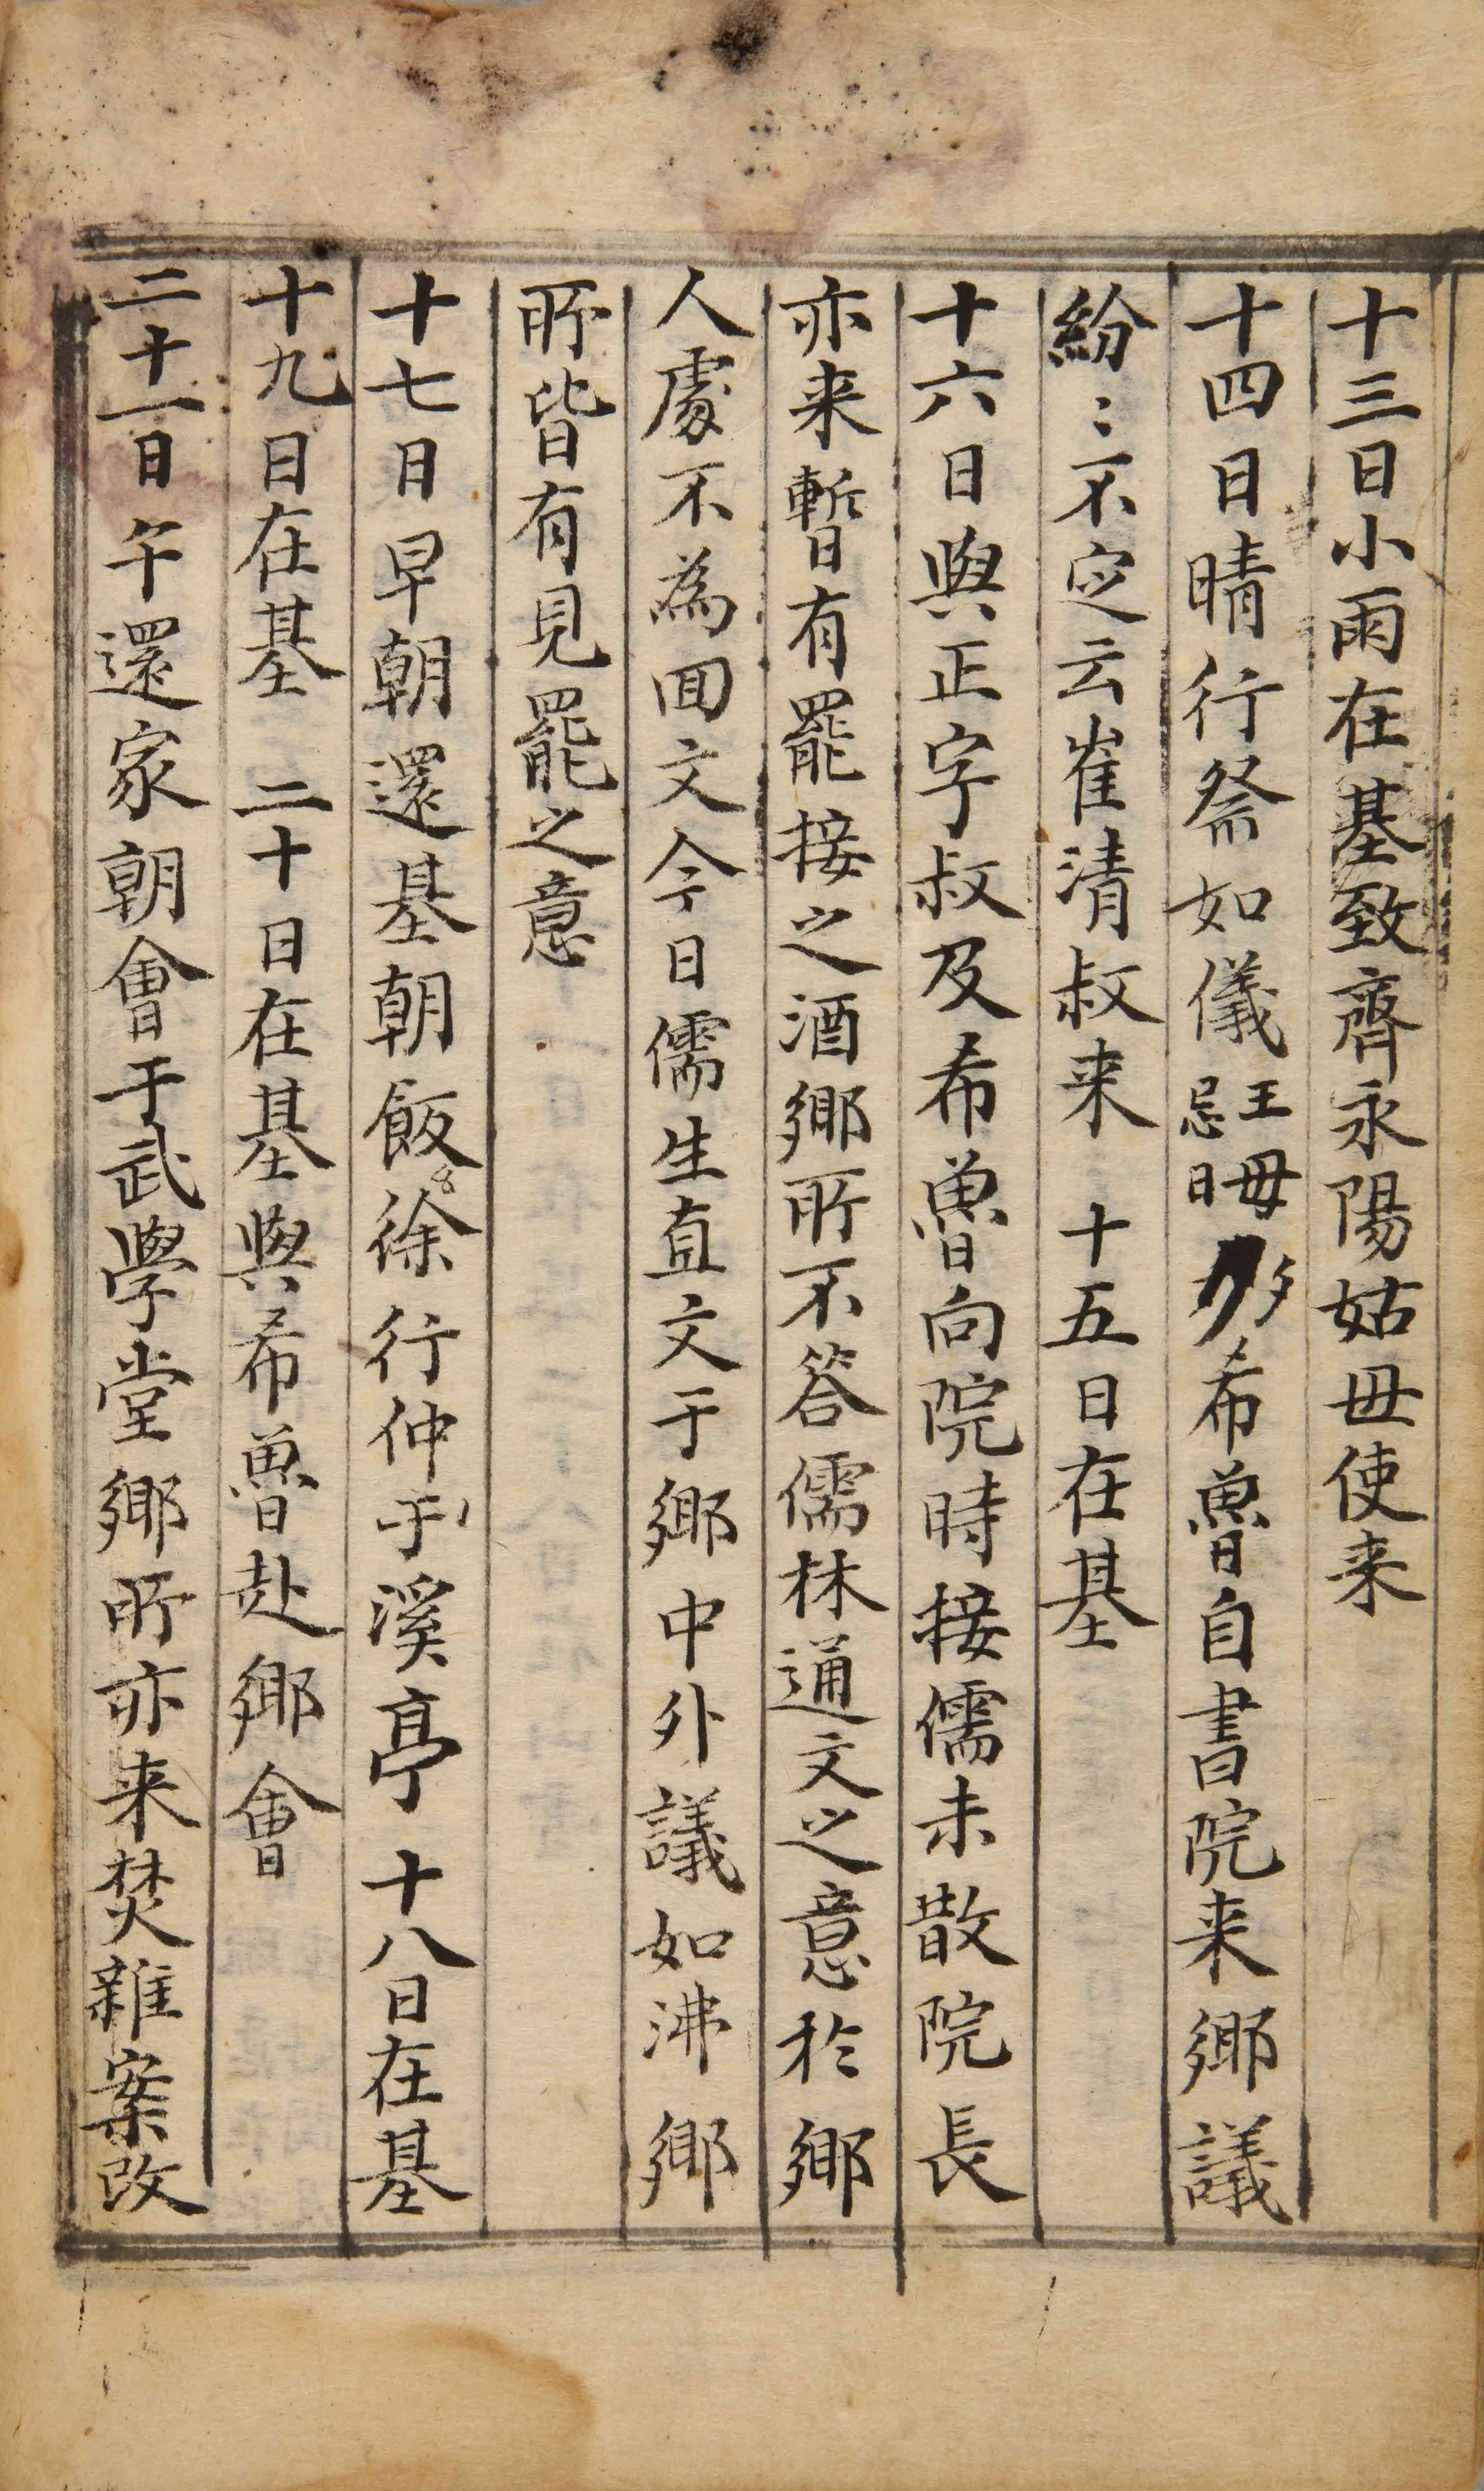 十三日小雨在基致齋永陽姑母使来
十四日晴行祭如儀王母忌日夕希魯自書院来鄉議
紛〻不㝎云崔清叔来 十五日在基
十六日與正字叔及希魯向院時接儒未散院長
亦来暫有罷接之酒鄉所不答儒林通文之意於鄉
人處不為回文今日儒生直文于鄉中外議如沸鄉
所皆有見罷之意
十七日早朝還基朝飯徐行仲于溪亭 十八日在基
十九日在基 二十日在基與希魯赴鄉會
二十一日午還家朝會于武學堂鄉所亦来焚雜案改